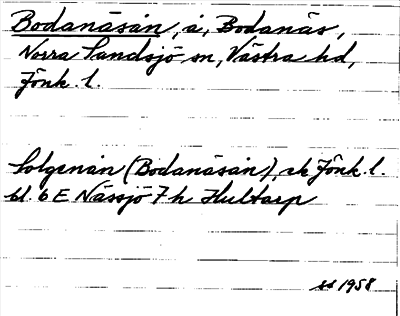 Bodanäsån, å, Bodanäs,
Norra Sandsjö sn, Västra hd,
Jönk. l.
Solgenån (Bodanäsån), ek Jönk. l.
bl. 6 E Nässjö 7 h Hultarp
1958